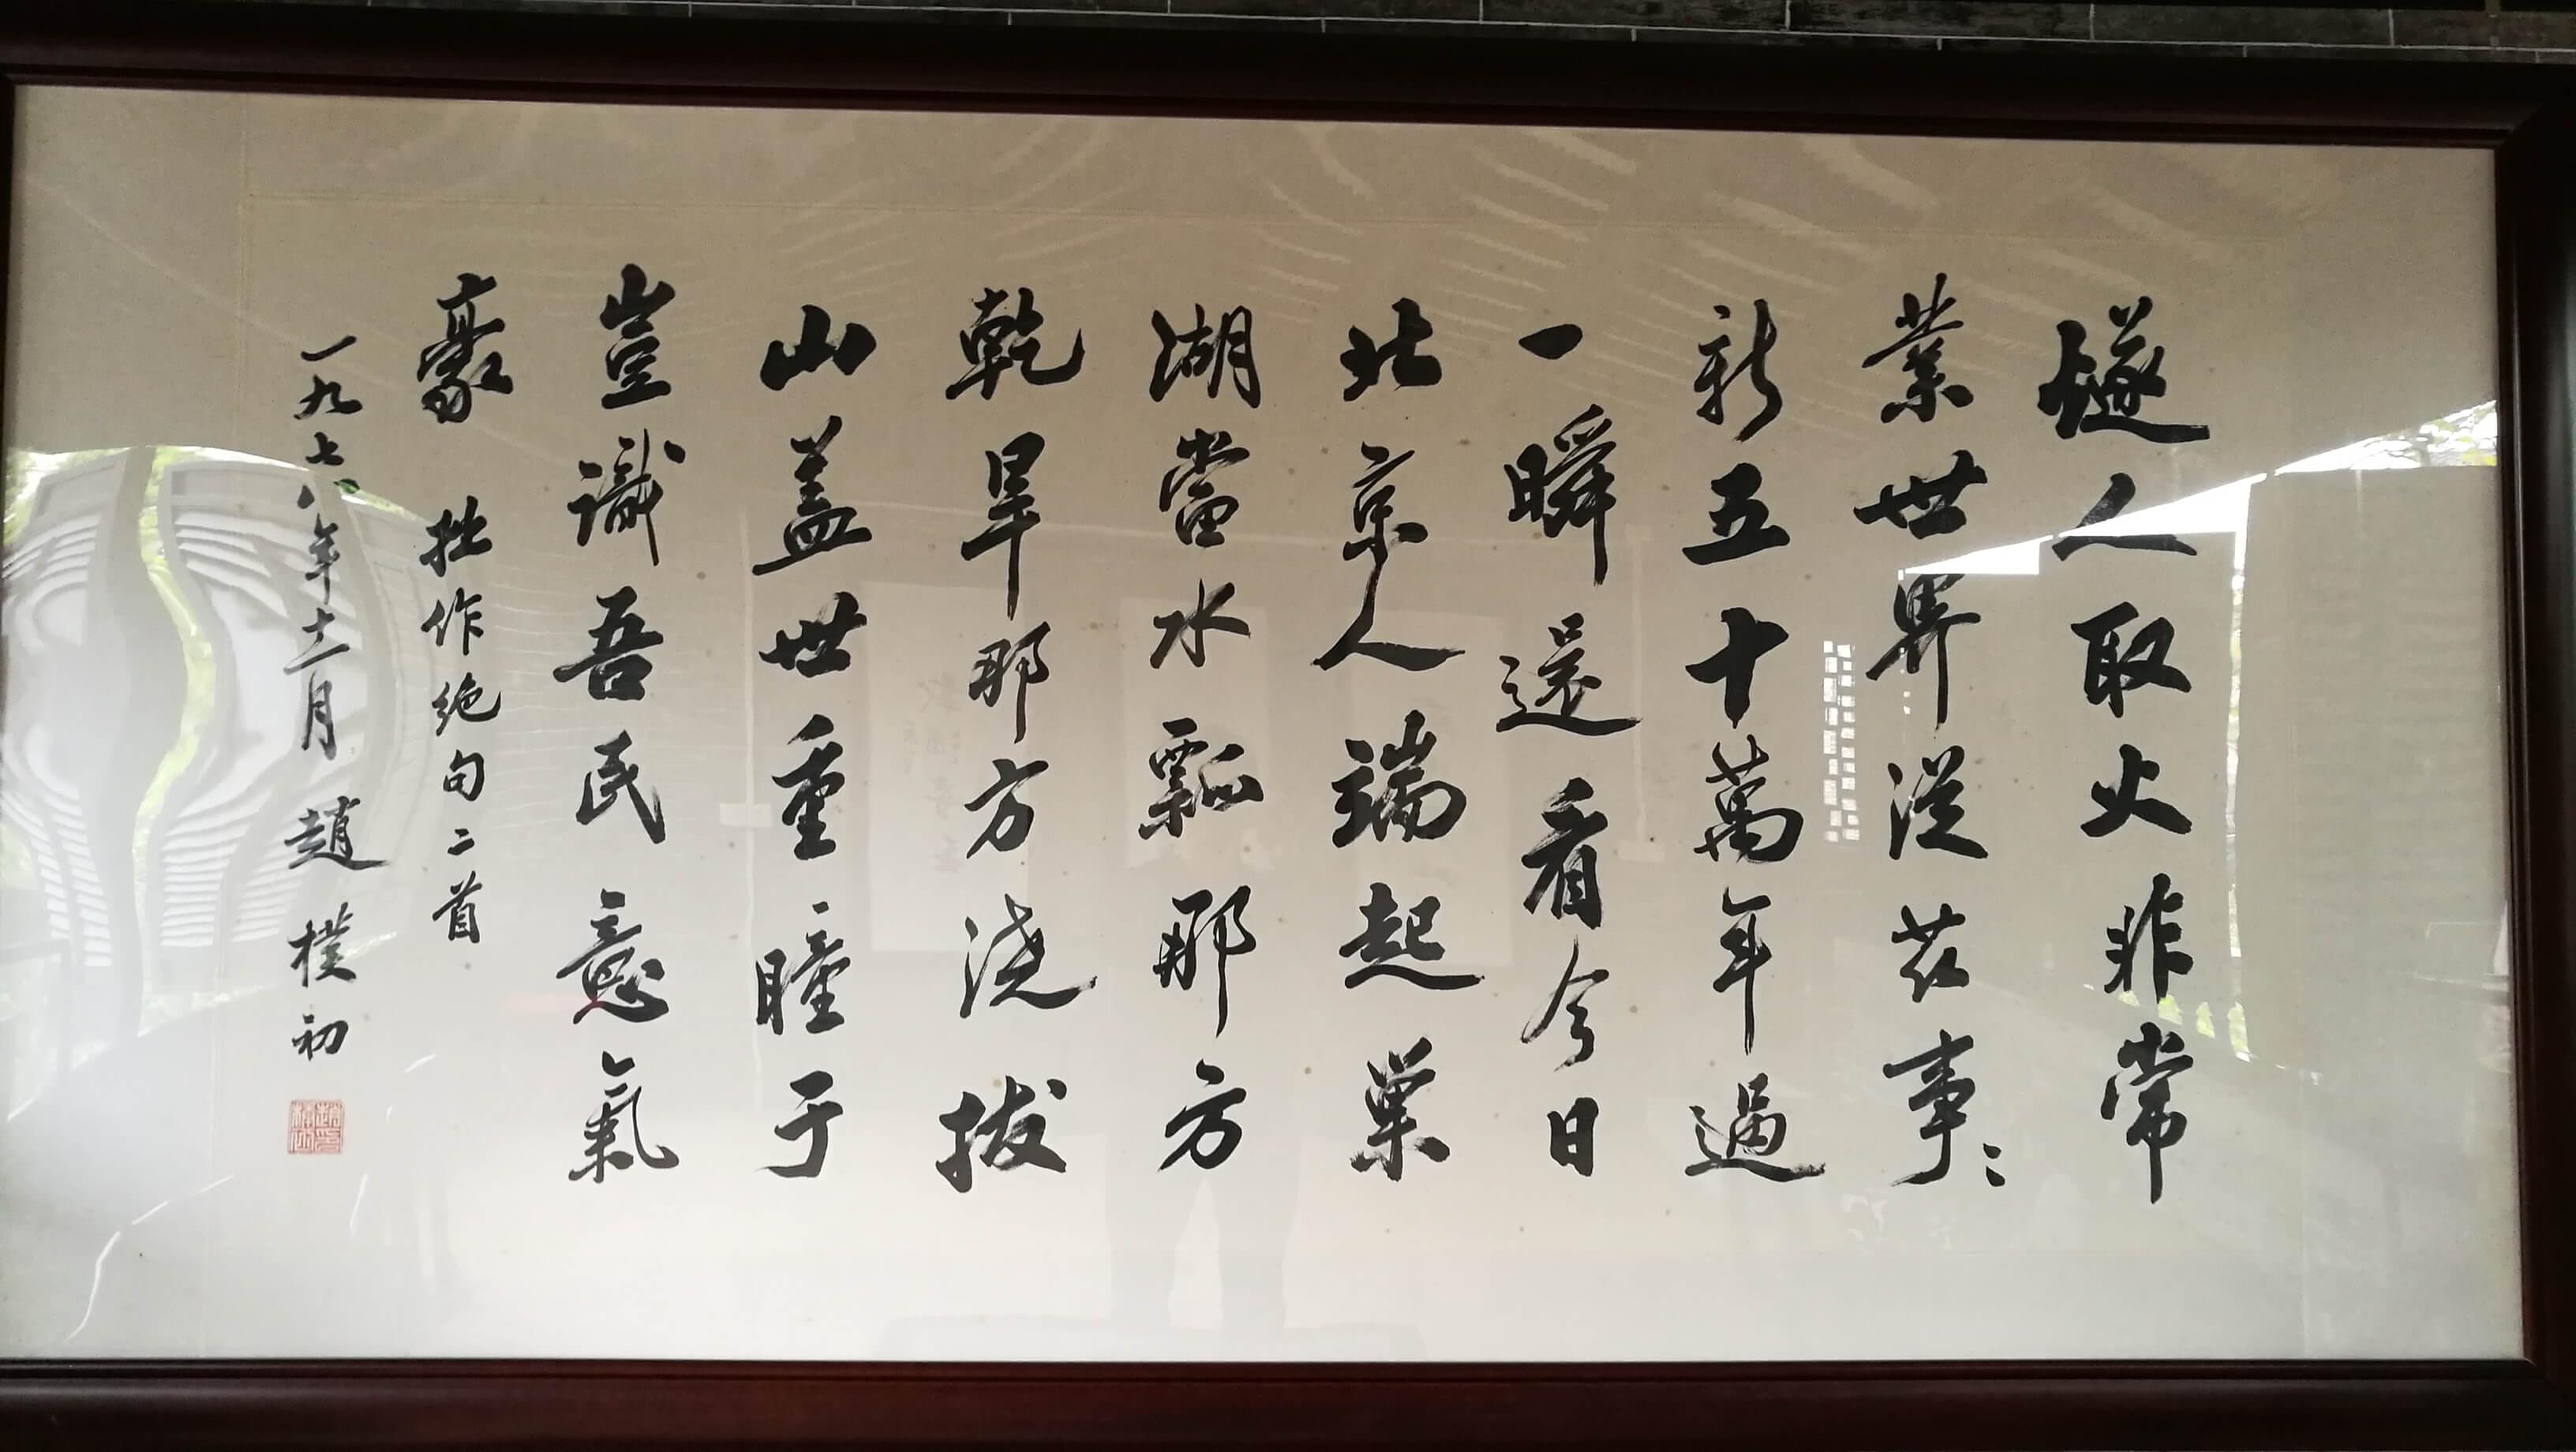 燧人取火非常
業世界從茲事〻
新五十萬年過
一瞬還看今日
北京人端起巢
湖當水瓢那方
乾旱那方澆拔
山蓋世重瞳于
豈識吾民意氣
豪 拙作绝句二首
一九七八年十一月 趙樸初